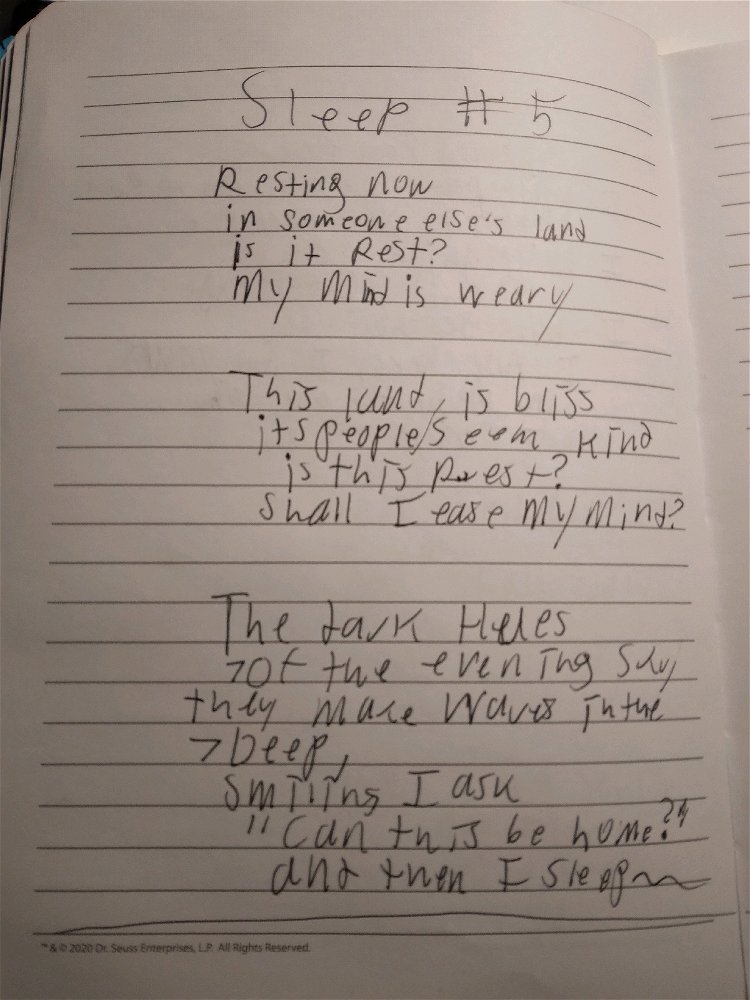 Sleep # 5
Resting now
in someone else's land
is it Rest?
My Mind is weary
This land, is bliss
its people seem kind
is this Rest?
Shall I ease My Mind?
The dark Hues
>of the evening sky
they make waves in the
>Deep,
Smiling I ask
"Can this be home?"
and then I sleep
™ & © 2020 Dr. Seuss Enterprises, L.P. All Rights Reserved.